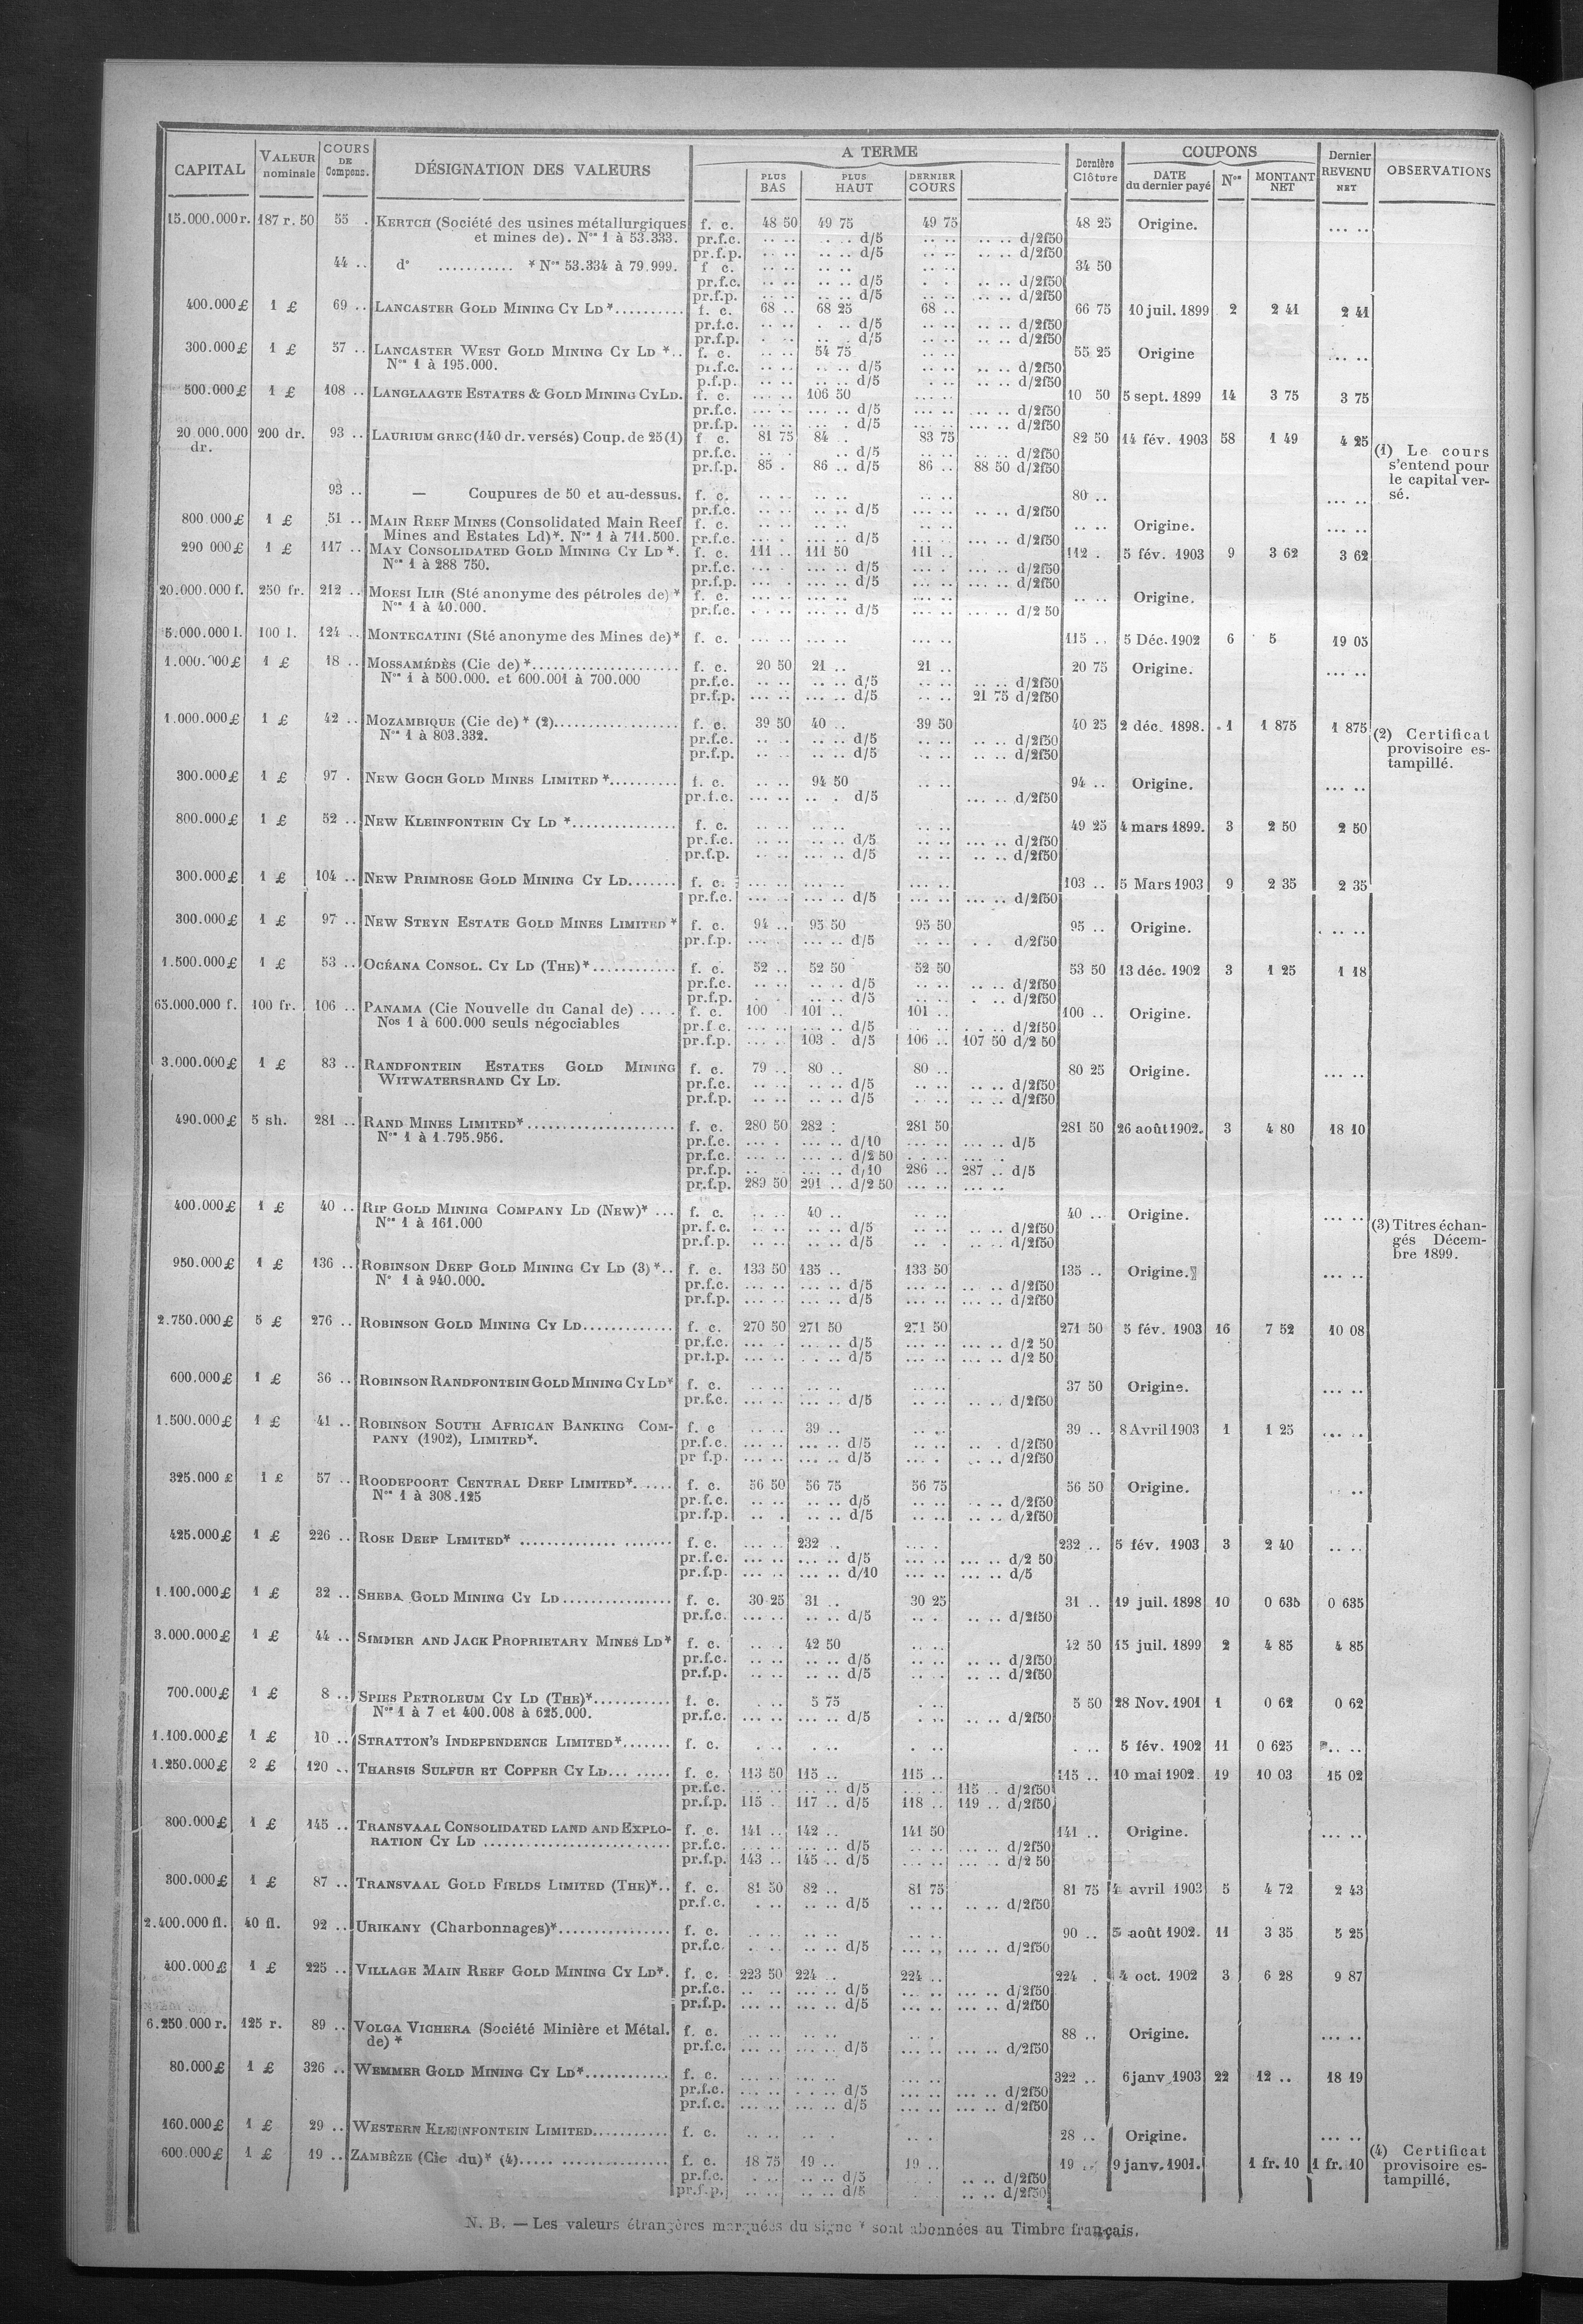 CAPITAL VALEUR nominale COURS DE Compens. DÉSIGNATION DES VALEURS A TERME PLUS BAS PLUS HAUT DERNIER COURS Dernière Clôture COUPONS DATE du dernier payé Nos MONTANT NET Dernier REVENU NET OBSERVATIONS
15.000.000 r. 187 r. 50 55 . KERTCH (Société des usines métallurgiques f. c. 48 50 49 75 49 75 48 25 Origine. ... ..
et mines de). Nos 1 à 53.333. pr.f.c. .. .. . .. d/5 .. .. .. .. d/2f50
pr.f.p. .. .. .. .. d/5 .. .. d/2f50
44 .. d° ........... * Nos 53.334 à 79.999. f c. .. .. .. .. .. .. 34 50
pr.f.c. .. .. .. .. d/5 . . .. .. d/2f50
pr.f.p. .. .. .. .. d/5 .. .. .. .. d/2f50
400.000 £ 1 £ 69 .. LANCASTER GOLD MINING CY LD *.......... f. c. 68 .. 68 25 68 .. 66 75 10 juil. 1899 2 2 41 2 41
pr.f.c. .. .. . .. d/5 .. .. .. .. d/2f50
pr.f.p. . .. .. .. d/5 .. .. .. .. d/2f50
300.000 £ 1 £ 57 .. LANCASTER WEST GOLD MINING CY LD *.. f. c. .. .. 54 75 .. .. 55 25 Origine ... ..
Nos 1 à 195.000. pr.f.c. .. .. .. .. d/5 .. .. .. .. d/2f50
p.f.p. .. .. .. .. d/5 . .. .. .. d/2f50
500.000 £ 1 £ 108 .. LANGLAAGTE ESTATES & GOLD MINING CY LD. f. c. ... .. 106 50 ... .. 10 50 5 sept. 1899 14 3 75 3 75
pr.f.c. ... .. ... .. d/5 ... .. ... .. d/2f50
pr.f.p. ... .. ... . d/5 ... .. ... .. d/2f50
20 000.000 200 dr. 93 .. LAURIUM GREC (140 dr. versés) Coup. de 25 (1) f c. 81 75 84 .. 83 75 82 50 14 fév. 1903 58 1 49 4 25
dr. pr.f.c. .. . .. d/5 .. .. .. .. d/2f50
pr.f.p. 85 . 86 .. d/5 86 .. 88 50 d/2f50
(1) Le cours
s'entend pour
le capital ver-
sé.
93 .. — Coupures de 50 et au-dessus. f. c. .. .. .. .. .. .. 80 .. ... ..
pr.f.c. .. .. .. .. d/5 .. .. .. .. d/2f50
800 000 £ 1 £ 51 .. MAIN REEF MINES (Consolidated Main Reef f. c. .. .. .. .. .. .. .. .. Origine. ... ..
Mines and Estates Ld)*. Nos 1 à 711.500. pr.f.c. ... . ... .. d/5 .. .. ... .. d/2f50
290 000 £ 1 £ 117 .. MAY CONSOLIDATED GOLD MINING CY LD *. f. c. 111 .. 111 50 111 .. 112 . 5 fév. 1903 9 3 62 3 62
Nos 1 à 288 750. pr.f.c. ... . ... .. d/5 ... . ... .. d/2f50
pr.f.p. ... . ... .. d/5 ... .. ... .. d/2f50
20.000.000 f. 250 fr. 212 .. MOESI ILIR (Sté anonyme des pétroles de) * f. c. ... .. ... .. ... .. .. .. Origine.
Nos 1 à 40.000. pr.f.c. . .. .. ... .. d/5 ... .. ... .. d/2 50
5.000.000 l. 100 l. 124 .. MONTECATINI (Sté anonyme des Mines de)* f. c. ... .. ... .. ... .. 115 .. 5 Déc. 1902 6 5 19 05
1.000.000 £ 1 £ 18 .. MOSSAMÉDÈS (Cie de) *.................... f. c. 20 50 21 .. 21 .. 20 75 Origine. ... ..
Nos 1 à 500.000. et 600.001 à 700.000 pr.f.c. .. .. .. .. d/5 .. .. .. .. d/2f50
pr.f.p. ... .. ... .. d/5 .. .. 21 75 d/2f50
1.000.000 £ 1 £ 42 .. MOZAMBIQUE (Cie de) * (2)................. f. c. 39 50 40 .. 39 50 40 25 2 déc. 1898. 1 1 875 1 875
Nos 1 à 803.332. pr.f.c. .. .. .. .. d/5 .. .. .. .. d/2f50
pr.f.p. .. .. .. .. d/5 .. .. .. .. d/2f50
(2) Certificat
provisoire es-
tampillé.
300.000 £ 1 £ 97 . NEW GOCH GOLD MINES LIMITED *.......... f. c. .. .. 94 50 .. .. 94 .. Origine. ... ..
pr.f.c. ... .. .. . d/5 ... .. d/2f50
800.000 £ 1 £ 52 .. NEW KLEINFONTEIN CY LD *............... f. c. .. .. .. .. .. .. 49 25 4 mars 1899. 3 2 50 2 50
pr.f.c. .. .. ... .. d/5 .. .. ... .. d/2f50
pr.f.p. . .. ... .. d/5 .. .. .. .. d/2f50
300.000 £ 1 £ 104 .. NEW PRIMROSE GOLD MINING CY LD....... f. c. ... .. ... .. ... .. 103 .. 5 Mars 1903 9 2 35 2 35
pr.f.c. ... .. ... .. d/5 ... .. ... .. d/2f50
300.000 £ 1 £ 97 .. NEW STEYN ESTATE GOLD MINES LIMITED * f. c. 94 .. 95 50 95 50 95 .. Origine. . .. ..
pr.f.p. ... . ... .. d/5 .. .. . . d/2f50
1.500.000 £ 1 £ 53 .. OCÉANA CONSOL. CY LD (THE)*............ f. c. 52 .. 52 50 52 50 53 50 13 déc. 1902 3 1 25 1 18
pr.f.c. .. .. .. .. d/5 .. .. .. .. d/2f50
pr.f.p. . . .. .. d/5 .. .. . .. d/2f50
65.000.000 f. 100 fr. 106 .. PANAMA (Cie Nouvelle du Canal de) .... . f. c. 100 . 101 .. 101 .. 100 .. Origine.
Nos 1 à 600.000 seuls négociables pr.f.c. ... .. ... .. d/5 .. .. . . .. d/2f50
pr.f.p. ... . 103 . d/5 106 .. 107 50 d/2 50
3.000.000 £ 1 £ 83 .. RANDFONTEIN ESTATES GOLD MINING f. c. 79 .. 80 .. 80 .. 80 25 Origine. ... ..
WITWATERSRAND CY LD. pr.f.c. .. .. .. .. d/5 .. .. .. .. d/2f50
pr.f.p. .. .. .. .. d/5 . .. .. .. d/2f50
490.000 £ 5 sh. 281 .. RAND MINES LIMITED*..................... f. c. 280 50 282 : 281 50 281 50 26 août 1902. 3 4 80 18 10
Nos 1 à 1.795.956. pr.f.c. ... . ... .. d/10 ... .. ... .. d/5
pr.f.c. ... .. ... .. d/2 50 . .. .. ... ..
pr.f.p. .. ... .. d/10 286 .. 287 .. d/5
pr.f.p. 289 50 291 .. d/2 50 ... .. ... ..
400.000 £ 1 £ 40 .. RIP GOLD MINING COMPANY LD (NEW)* ... f. c. .. . 40 .. .. .. 40 .. Origine. ... ..
Nos 1 à 161.000 pr.f.c. .. .. .. .. d/5 .. .. .. .. d/2f50
pr.f.p. .. .. .. .. d/5 .. . .. .. d/2f50
(3) Titres échan-
gés Décem-
bre 1899.
950.000 £ 1 £ 136 .. ROBINSON DEEP GOLD MINING CY LD (3) *.. f. c. 133 50 135 .. 133 50 135 .. Origine. ... ..
N° 1 à 940.000. pr.f.c. ... .. ... .. d/5 ... .. ... .. d/2f50
pr.f.p. ... .. ... .. d/5 ... .. ... .. d/2f50
2.750.000 £ 5 £ 276 .. ROBINSON GOLD MINING CY LD............. f. c. 270 50 271 50 271 50 271 50 5 fév. 1903 16 7 52 10 08
pr.f.c. ... . ... .. d/5 ... .. ... .. d/2 50
pr.f.p. ... .. . .. d/5 ... .. ... .. d/2 50
600.000 £ 1 £ 36 .. ROBINSON RANDFONTEIN GOLD MINING CY LD* f. c. .. .. .. .. .. .. 37 50 Origine. ... ..
pr.f.c. ... .. ... .. d/5 .. .. .. .. d/2f50
1.500.000 £ 1 £ 41 .. ROBINSON SOUTH AFRICAN BANKING COM- f. c .. .. 39 .. .. .. 39 .. 8 Avril 1903 1 1 25 ... ..
PANY (1902), LIMITED*. pr.f.c. ... .. ... .. d/5 .. .. .. . d/2f50
pr f.p. ... .. ... .. d/5 ... . .. .. d/2f50
325.000 £ 1 £ 57 .. ROODEPOORT CENTRAL DEEP LIMITED*...... f. c. 56 50 56 75 56 75 56 50 Origine. . ..
Nos 1 à 308.125 pr.f.c. .. .. .. .. d/5 .. .. .. .. d/2f50
pr.f.p. .. . . .. d/5 .. .. .. .. d/2f50
425.000 £ 1 £ 226 .. ROSE DEEP LIMITED* .............. ....... f. c. ... .. 232 .. ... . 232 .. 5 fév. 1903 3 2 40 .. ..
pr.f.c. ... .. ... .. d/5 ... .. ... .. d/2 50
pr.f.p. ... .. ... .. d/10 ... .. ... .. d/5
1.100.000 £ 1 £ 32 .. SHEBA GOLD MINING CY LD................ f. c. 30 25 31 .. 30 25 31 .. 19 juil. 1898 10 0 635 0 635
pr.f.c. ... .. .. .. d/5 .. . .. .. d/2f50
3.000.000 £ 1 £ 44 .. SIMMER AND JACK PROPRIETARY MINES LD* f. c. .. . 42 50 .. .. 42 50 15 juil. 1899 2 4 85 4 85
pr.f.c. .. .. .. .. d/5 .. .. .. .. d/2f50
pr.f.p. .. .. .. .. d/5 .. .. .. .. d/2f50
700.000 £ 1 £ 8 .. SPIES PETROLEUM CY LD (THE)*........... f. c. . .. 5 75 . .. 5 50 28 Nov. 1901 1 0 62 0 62
Nos 1 à 7 et 400.008 à 625.000. pr.f.c. ... .. ... .. d/5 . .. .. .. d/2f50
1.100.000 £ 1 £ 10 .. STRATTON'S INDEPENDENCE LIMITED*....... f. c. . .. . .. . .. . .. 5 fév. 1902 11 0 625 .. ..
1.250.000 £ 2 £ 120 .. THARSIS SULFUR ET COPPER CY LD... ..... f. c. 113 50 115 .. 115 .. 115 .. 10 mai 1902. 19 10 03 15 02
pr.f.c. ... .. ... .. d/5 ... .. 115 .. d/2f50
pr.f.p. 115 . 117 .. d/5 118 .. 119 .. d/2f50
800.000 £ 1 £ 145 .. TRANSVAAL CONSOLIDATED LAND AND EXPLO- f. c. 141 .. 142 .. 141 50 141 .. Origine. ... ..
RATION CY LD .......................... pr.f.c. ... .. ... .. d/5 ... .. ... .. d/2f50
pr.f.p. 143 .. 145 .. d/5 ... .. ... .. d/2 50
300.000 £ 1 £ 87 .. TRANSVAAL GOLD FIELDS LIMITED (THE)*.. f. c. 81 50 82 .. 81 75 81 75 4 avril 1903 5 4 72 2 43
pr.f.c. . .. .. .. d/5 .. .. .. .. d/2f50
2.400.000 fl. 40 fl. 92 .. URIKANY (Charbonnages)*................ f. c. .. .. .. .. .. .. 90 .. 5 août 1902. 11 3 35 5 25
pr.f.c. . .. .. .. d/5 ... .. ... .. d/2f50
400.000 £ 1 £ 225 .. VILLAGE MAIN REEF GOLD MINING CY LD*. f. c. 223 50 224 .. 224 .. 224 . 4 oct. 1902 3 6 28 9 87
pr.f.c. .. .. ... .. d/5 ... .. ... .. d/2f50
pr.f.p. ... .. ... .. d/5 ... .. ... .. d/2f50
6.250.000 r. 125 r. 89 .. VOLGA VICHERA (Société Minière et Métal. f. c. .. .. .. .. .. . 88 .. Origine. ... ..
de) * pr.f.c. ... .. ... .. d/5 ... .. ... .. d/2f50
80.000 £ 1 £ 326 .. WEMMER GOLD MINING CY LD*............ f. c. ... .. ... .. ... .. 322 .. 6 janv 1903 22 12 .. 18 19
pr.f.c. ... .. . .. d/5 ... .. ... .. d/2f50
pr.f.c. ... .. ... .. d/5 ... .. ... .. d/2f50
160.000 £ 1 £ 29 .. WESTERN KLEINFONTEIN LIMITED........... f. c. .. .. .. . .. . 28 .. Origine. ... ..
600.000 £ 1 £ 19 .. ZAMBÈZE (Cie du)* (4)..... ................ f. c. 18 75 19 .. 19 .. 19 .. 9 janv. 1901. 1 fr. 10 1 fr. 10
pr.f.c. . .. .. .. d/5 . .. .. d/2f50
pr.f.p. .. .. .. .. d/5 .. .. d/2f50
(4) Certificat
provisoire es-
tampillé.
N. B. — Les valeurs étrangères marquées du signe * sont abonnées au Timbre français.